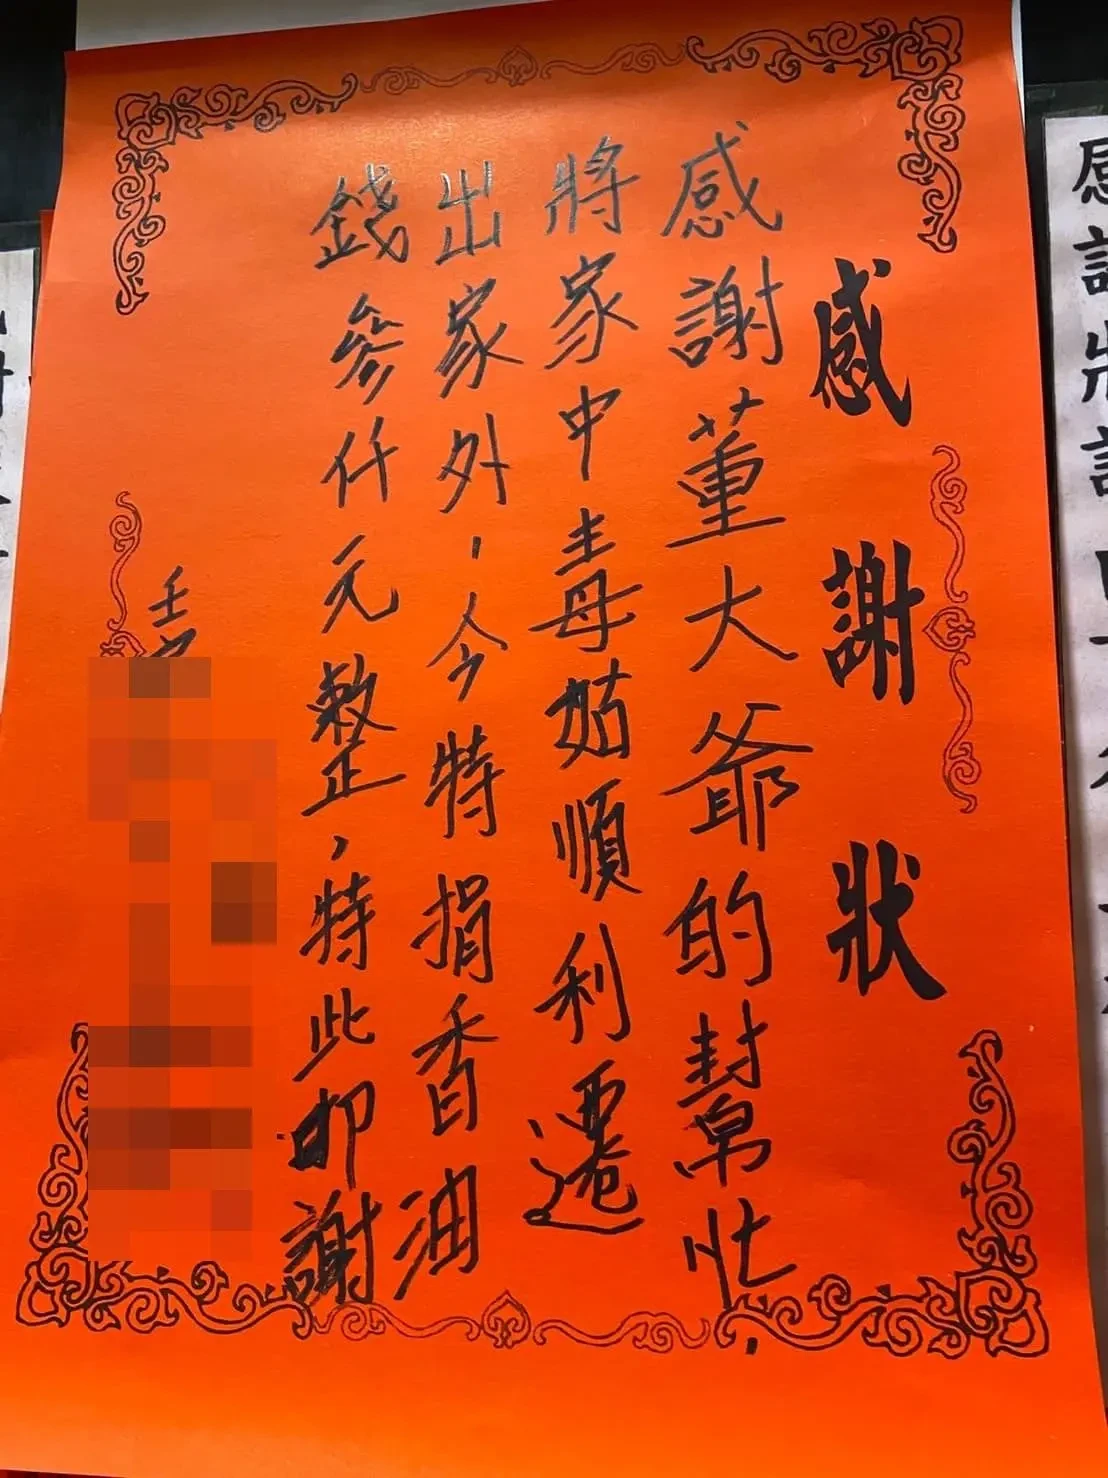 感謝狀
感謝董大爺的幫忙，
將家中毒姑順利遷
出家外，今特捐香油
錢參仟元整，特此叩謝
壬